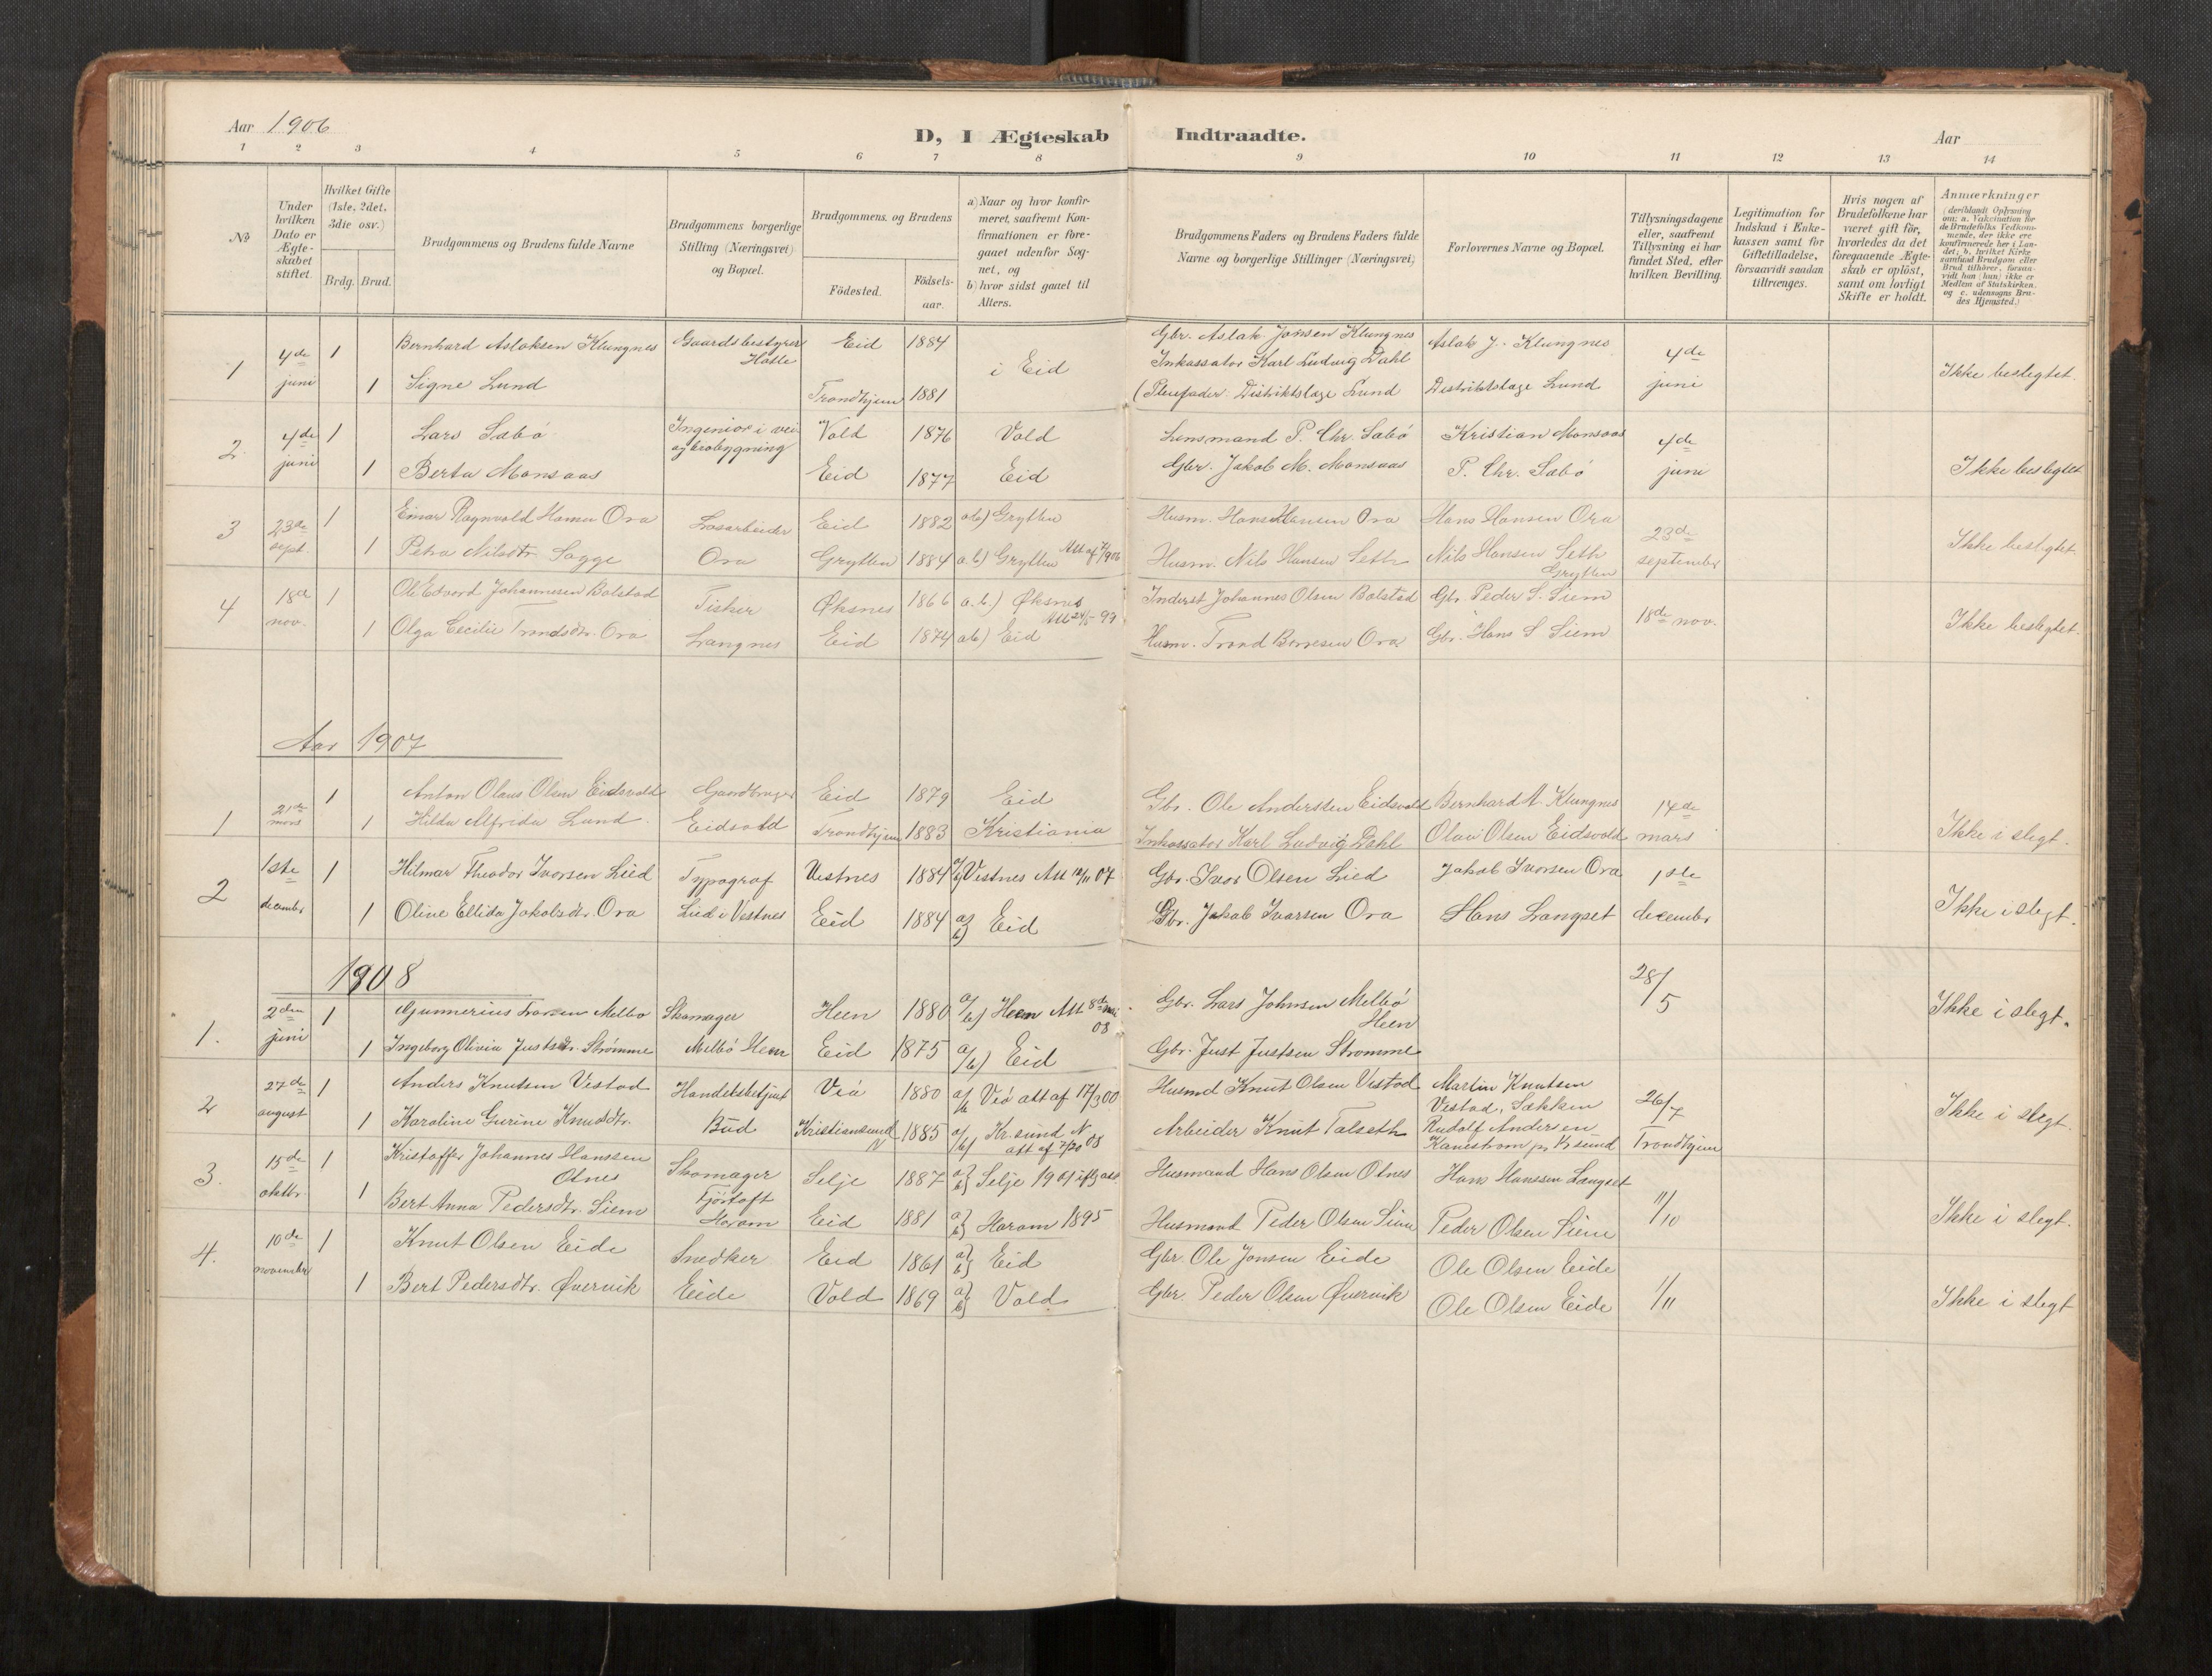 Aar 1906
D, I Ægteskab Indtraadte.
Aar
1 2 3 4 5 6 7 8 9 10 11 12 13 14
№
Under hvilken Dato er Ægteskabet stiftet.
Hvilket Gifte (1ste, 2det, 3die osv.)
Brdg. Brud.
Brudgommens og Brudens fulde Navne
Brudgommens borgerlige Stilling (Næringsvei) og Bopæl.
Brudgommens og Brudens
Födested.
Födselsaar.
a) Naar og hvor konfirmeret, saafremt Konfirmationen er foregaaet udenfor Sognet, og
b) hvor sidst gaaet til Alters.
Brudgommens Faders og Brudens Faders fulde Navne og borgerlige Stillinger (Næringsvei)
Forlovernes Navne og Bopæl.
Tillysningsdagene eller, saafremt Tillysning ei har fundet Sted, efter hvilken Bevilling.
Legitimation for Indskud i Enkekassen samt for Giftetilladelse, forsaavidt saadan tiltrænges.
Hvis nogen af Brudefolkene har været gift för, hvorledes da det foregaaende Ægteskab er oplöst, samt om lovligt Skifte er holdt.
Anmærkninger (deriblandt Oplysning om: a. Vakcination for de Brudefolks Vedkommende, der ikke ere konfirmerede her i Landet; b. hvilket Kirkesamfund Brudgom eller Brud tilhörer, forsaavidt han (hun) ikke er Medlem af Statskirken. og c. udensogns Brudes Hjemsted.)
1 4de juni 1 Bernhard Aslaksen Klungnes Gaardsbestyrer Eid 1884 i Eid Gbr. Aslak Jonsen Klungnes Aslak J. Klungnes 4de juni Ikke beslegtet.
1 Signe Lund Trondhjem 1881 Inkassator Karl Ludvig Dahl
(Pleiefader: Distriktslæge Lund Distriktslæge Lund
2 4de juni 1 Lars Sæbö Ingeniør i vei Vold 1876 Vold Lensmand P. Chr. Sæbö Kristian Monsaas 4de juni
1 Berta Monsaas Eid 1877 Eid Gbr. Jakob M. Monsaas P. Chr. Sæbö Ikke beslegtet
3 23de sept. 1 Einar Ragnvald Hansen Ora Løsarbeider Eid 1882 a b) Grytten Husm. Hans Hansen Ora Hans Hansen Ora 23de september Ikke beslegtet
1 Petra Nilsdtr. Sogge Ora Grytten 1884 a. b) Grytten Husm. Nils Hansen Seth Nils Hansen Seth Grytten
4 18de nov. 1 Ole Edvard Johannesen Bolstad Fisker Øksnes 1866 a. b.) Øksnes Att 24/5 99 Inderst Johannes Olsen Bolstad Gbr. Peder S. Siem 18de nov. Ikke beslegtet.
1 Olga Cecilie Trondsdtr. Ora Langnes Eid 1874 a b) Eid Husm. Trond Børresen Ora Gbr. Hans S Siem
Aar 1907
1 21de mars 1 Anton Olaus Olsen Eidsvold Gaardbruger Eid 1879 Eid Gbr. Ole Andersten Eidsvold Bernhard A. Klungnes 14de mars
1 Hilda Alfrida Lund Eidsvold Trondhjem 1883 Kristiania Inkassator Karl Ludvig Dahl Olav Olsen Eidsvold Ikke i slegt.
2 1ste december 1 Hilmar Theodor Ivarsen Lied Typograf Vestnes 1884 a/b) Vestnes Att 12/11 07 Gbr. Ivar Olsen Lied Jakob Ivarsen Ora 1ste december
1 Oline Ellida Jakobsdtr. Ora Lied i Vestnes Eid 1884 a/b) Eid Gbr. Jakob Ivarsen Ora Hans Langset Ikke i slegt.
1908
1. 2den juni 1 Gunnerius Larsen Melbø Skomager Heen 1880 a/b) Heen Att 8de mai 08 Gbr. Lars Johnsen Melbö Heen 28/5 Ikke i slegt.
1 Ingeborg Olivia Justsdtr. Strømme Melbö Heen Eid 1875 a/b) Eid Gbr. Just Justsen Strømme
2 27de august 1 Anders Knutsen Vestad Handelsbetjent Veö 1880 a/b Veö att af 17/3 00 Husmd Knut Olsen Vestad Martin Knutsen Vestad, Sækken 26/7 Trondhjem Ikke i slegt.
1 Karoline Gurine Knudsdtr. Bud Kristiansund N 1885 a/b) Kr.sund N Arbeider Knut Talseth Rudolf Andersen
3. 15de oktbr. 1 Kristoffer Johannes Hanssen Otnes Skomager Selje 1887 a/b} Selje 1901 Husmand Hans Olsen Otnes Hans Hanssen Langset 11/10
1 Bert Anna Pedersdtr. Siem Fjörtoft Haram Eid 1881 a/b} Haram 1895 Husmand Peder Olsen Siem Peder Olsen Siem Ikke i slegt.
4. 10de november 1 Knut Olsen Eide Snedker Eid 1861 a/b} Eid Gbr. Ole Jonsen Eide Ole Olsen Eide 1/11
1 Bert Pedersdtr. Øvervik Eide Vold 1869 a/b} Vold Gbr. Peder Olsen Øvervik Ole Olsen Eide Ikke i slegt